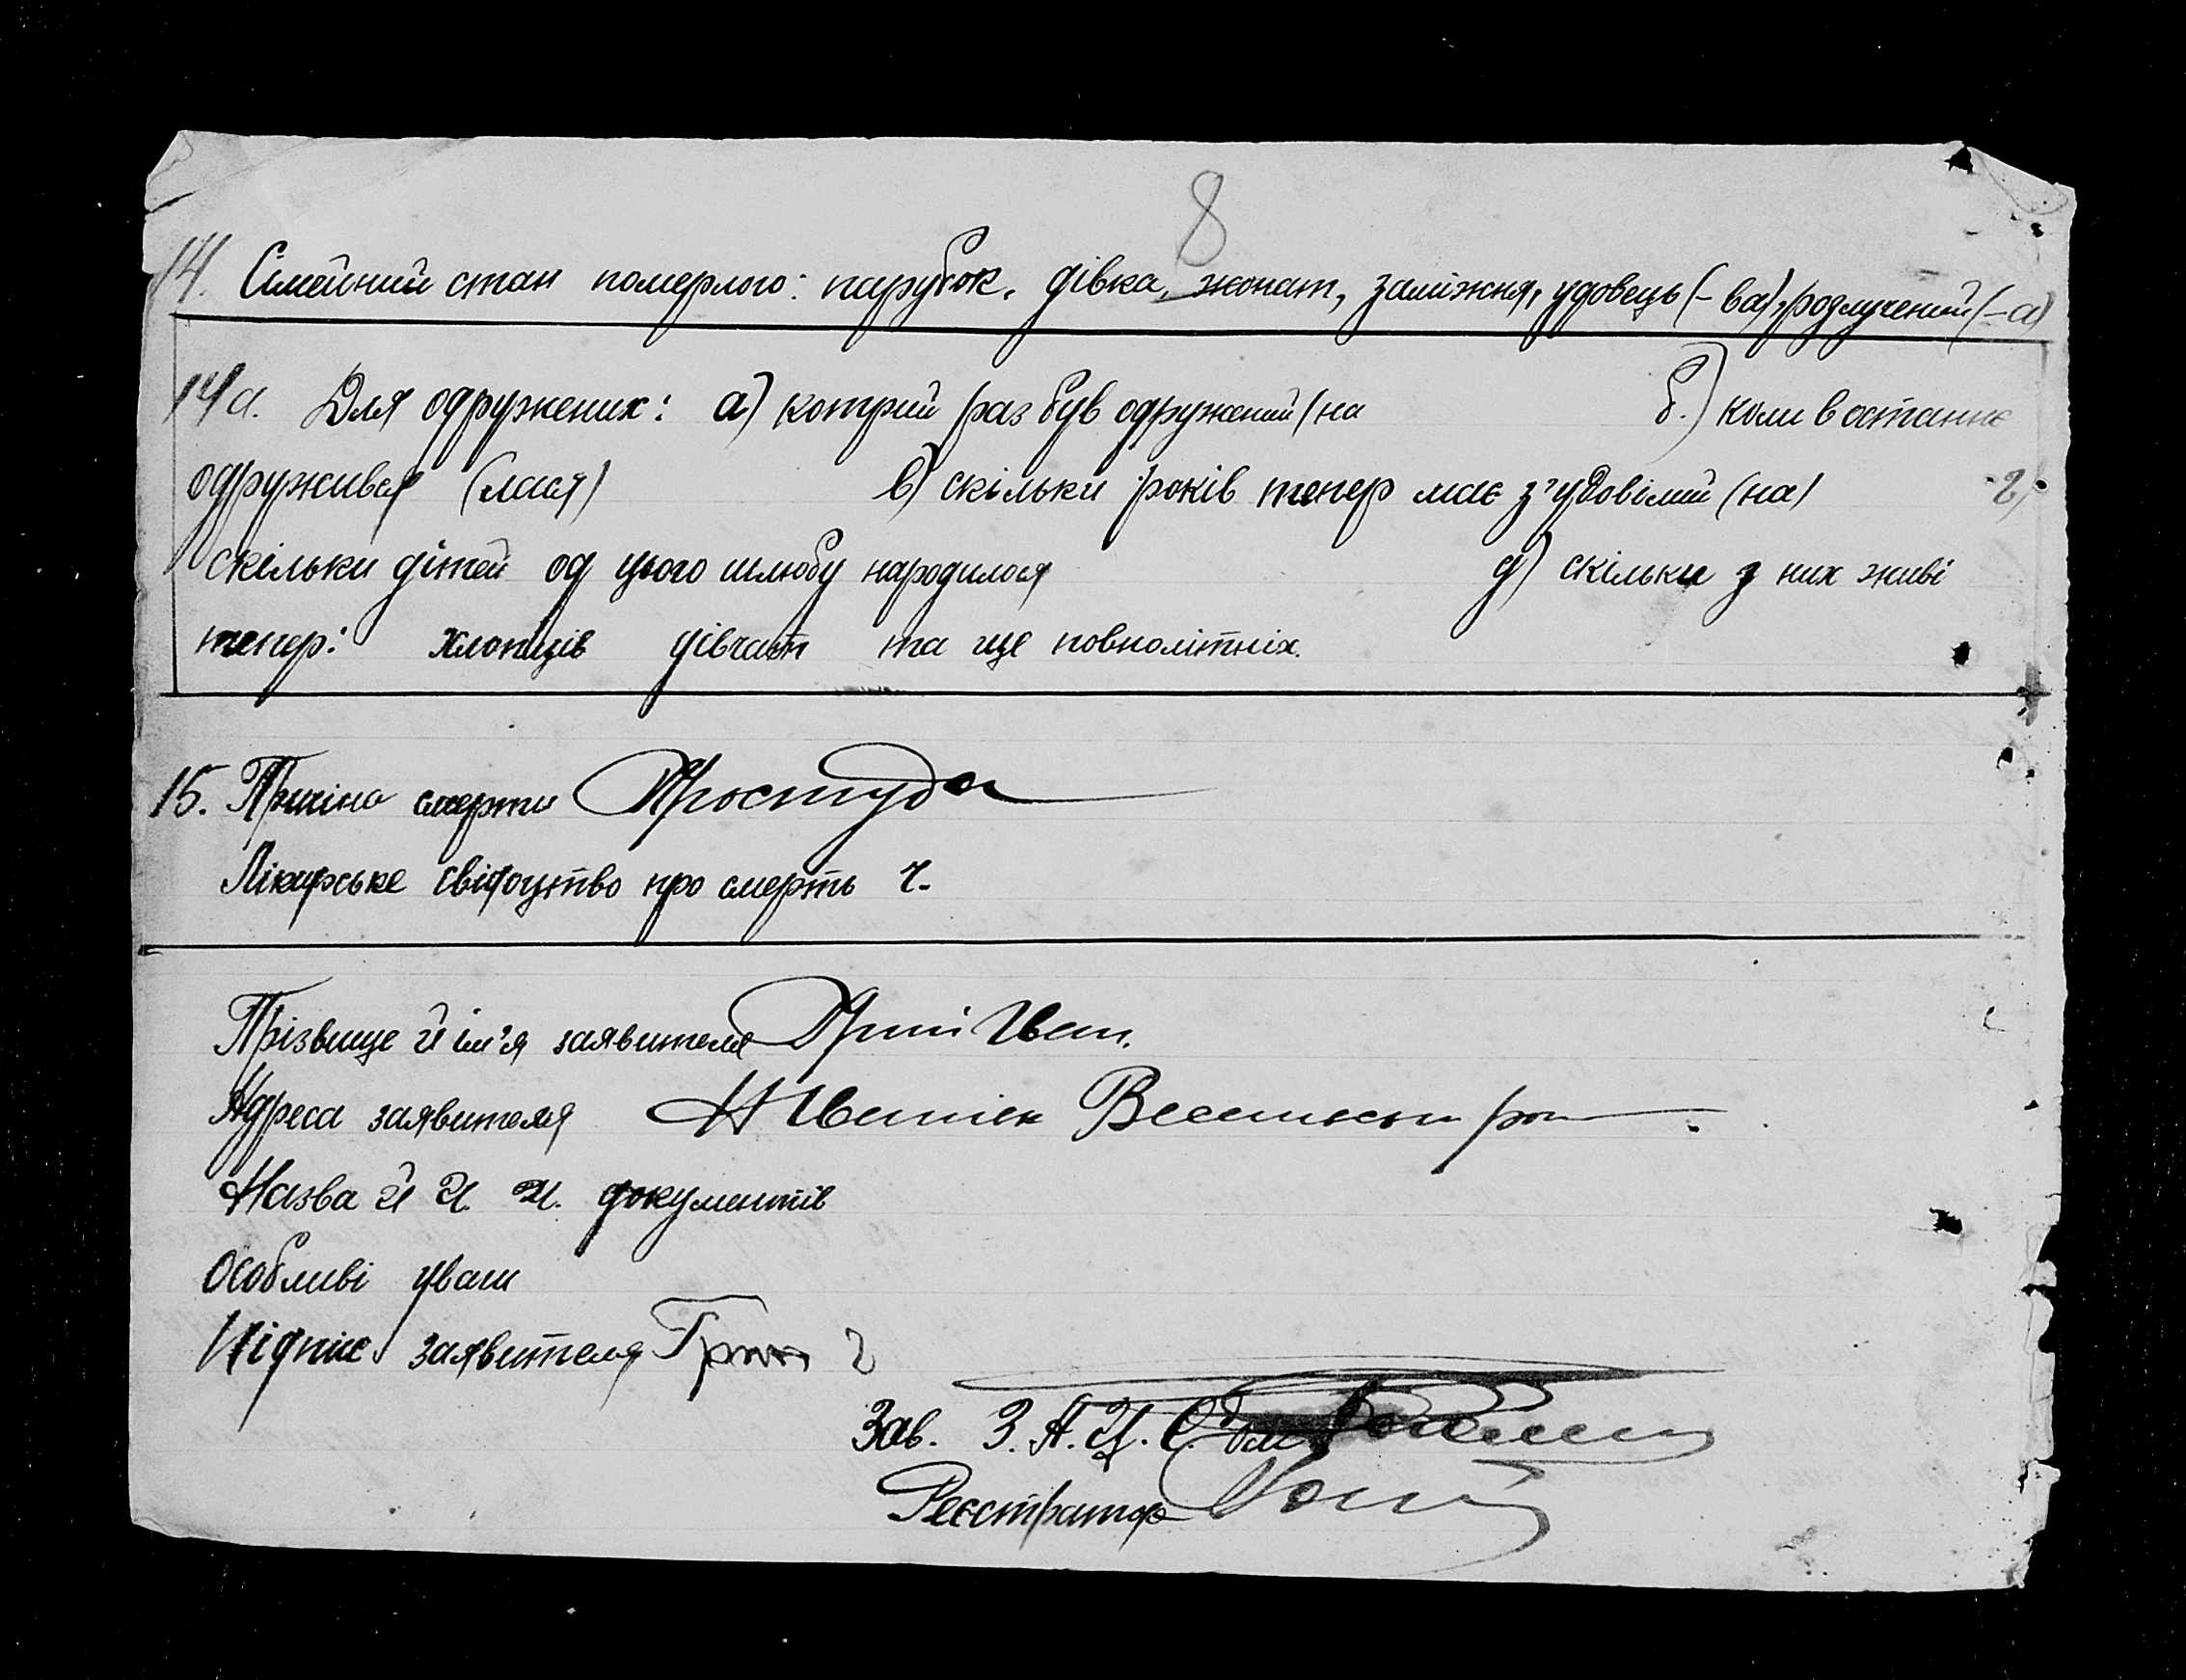 8
14. Сімейний стан померлого: парубок, дівка, жонат, заміжня, удовець (-ва), розлучений (-а)
14а. Для одружених: а) котрий раз був одружений (на б.) коли востаннє
одружився (лася) в) скільки років тепер має з'удовілий (на) г)
скільки дітей од цього шлюбу народилося д) скільки з них живі
тепер: хлопців дівчат та ще повнолітніх.
15. Причіна смерти Простуда
Лікарське свідоцтво про смерть ч.
Прізвище й ім'я заявителя Іван.
Адреса заявителя
Назва й Ч. Ч. документів
Особливі уваги
Підпис заявителя
Зав. З.А.Ц.С.
Реєстратор